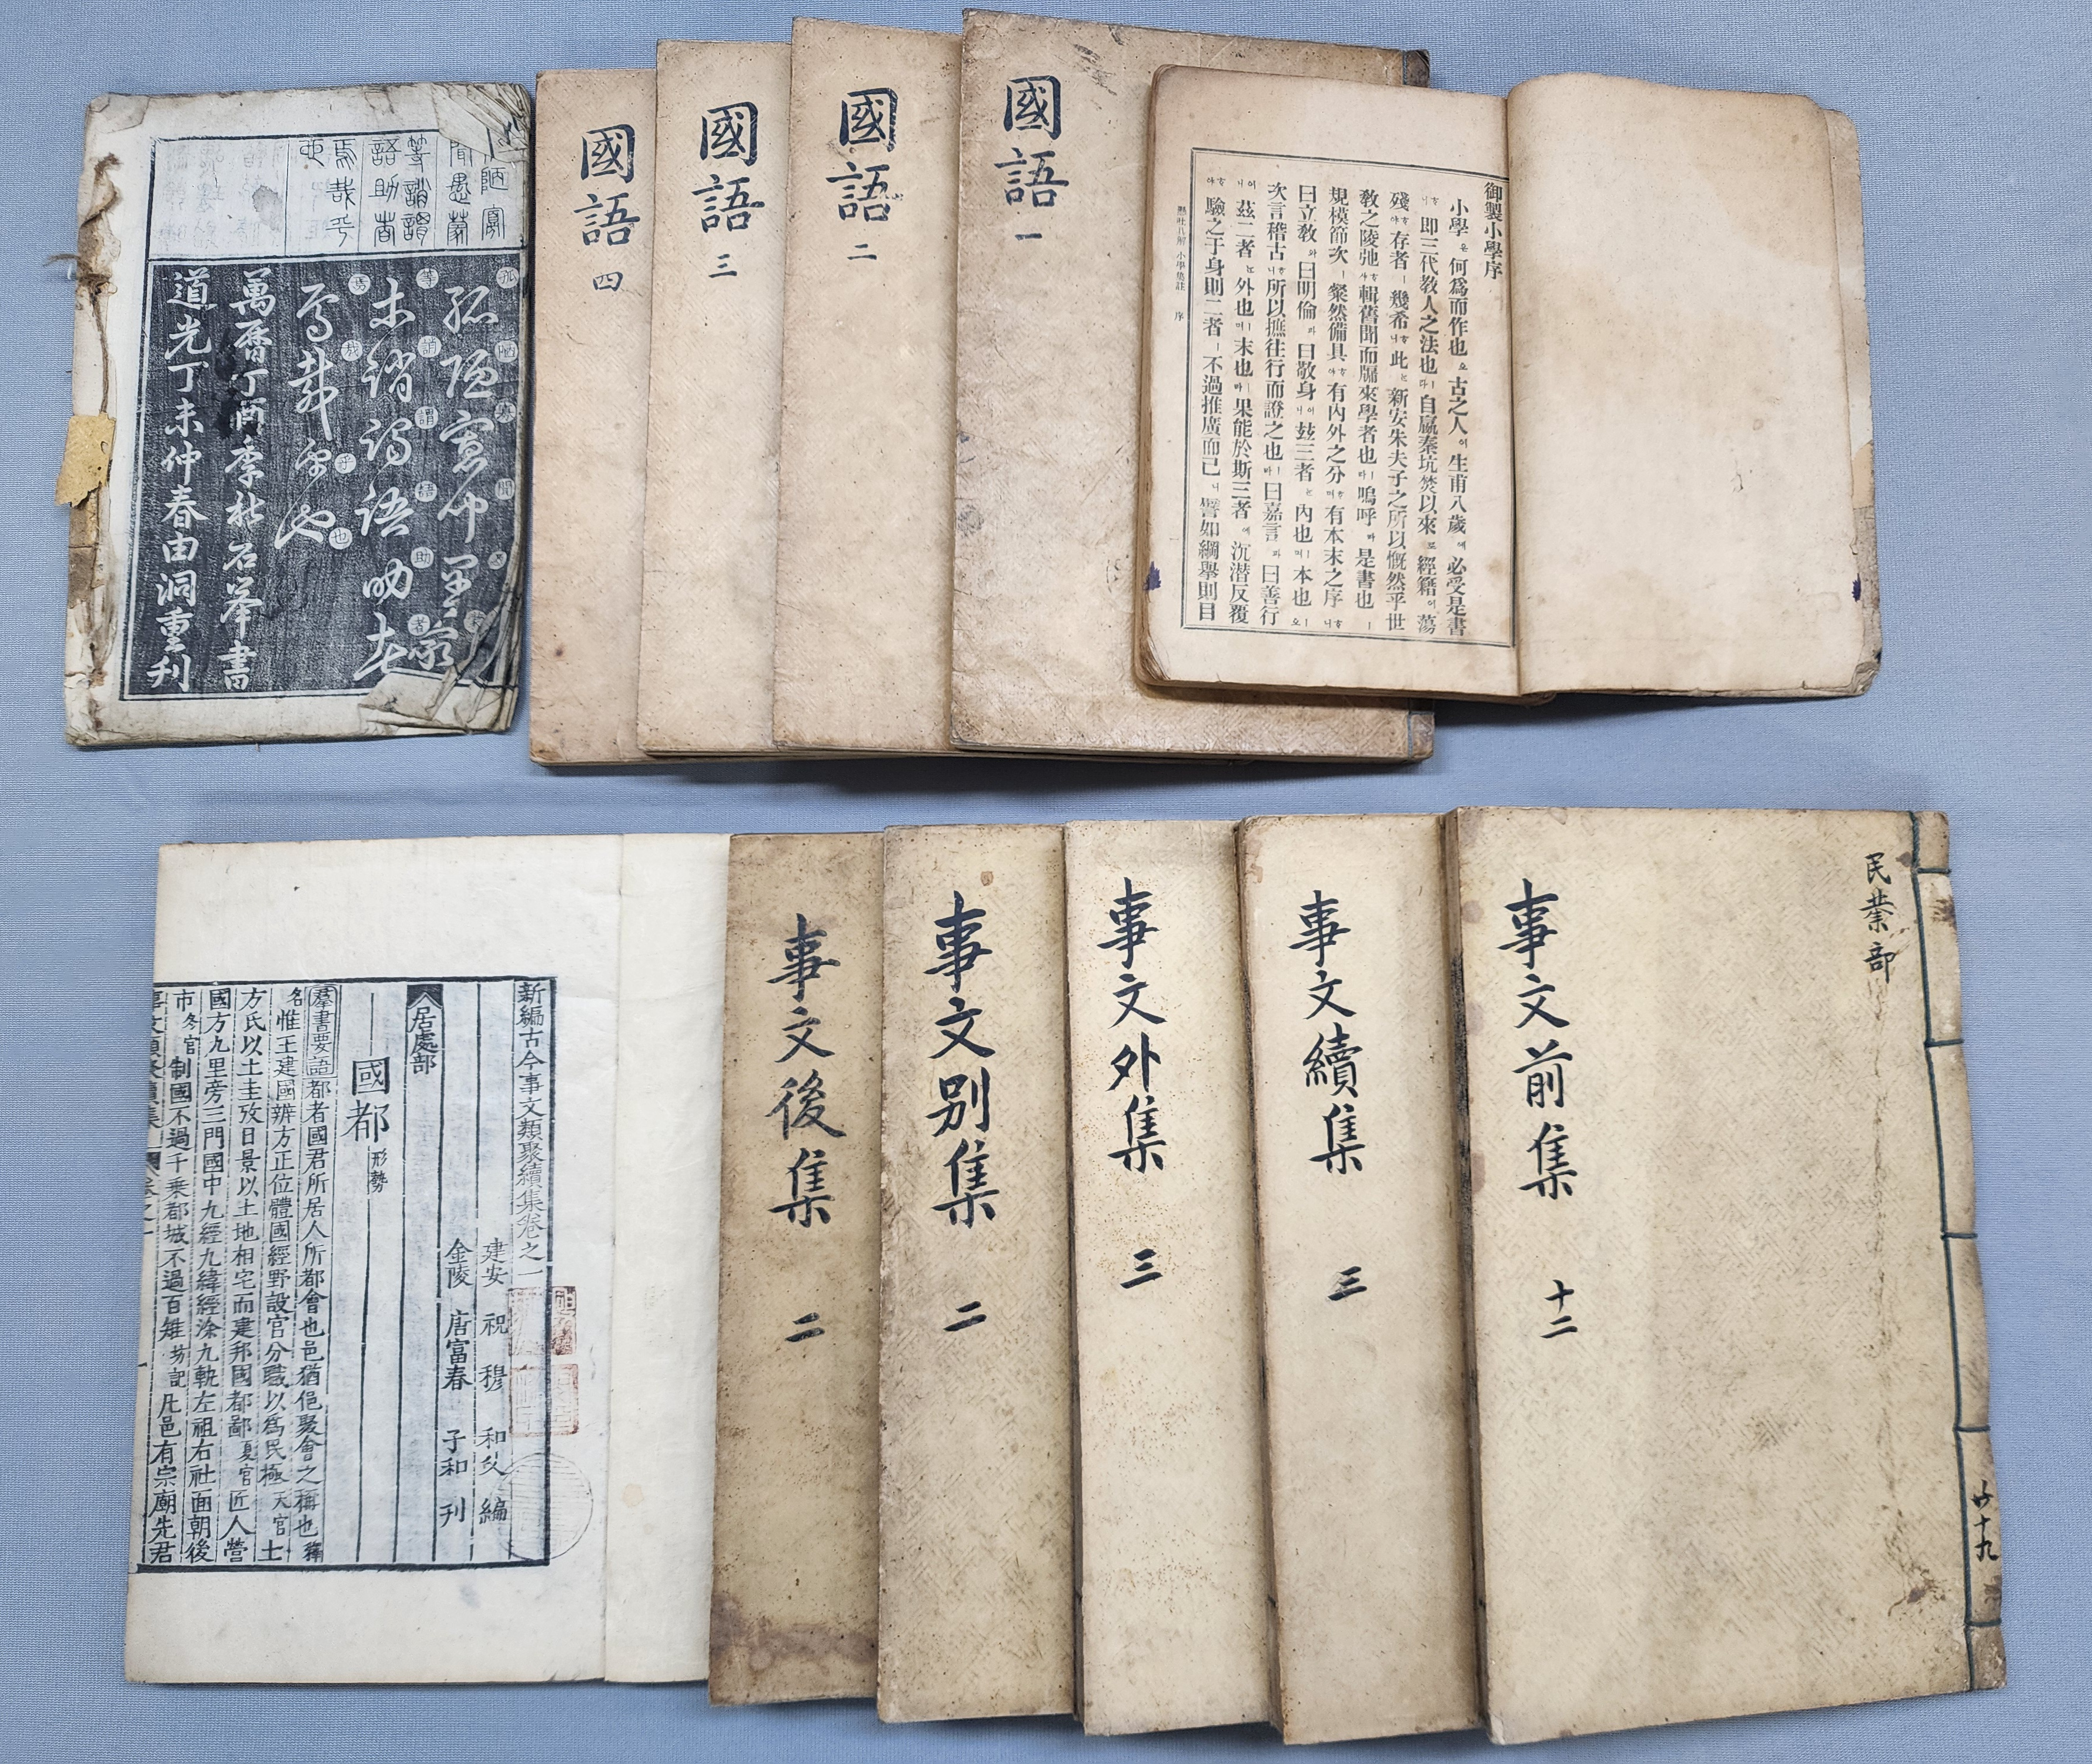 陋寡
聞愚蒙
等誚謂
語助者
焉哉乎
也
孤陋寡聞愚蒙
等誚謂語助者
焉哉乎也
萬曆丁酉季秋石峯書
道光丁未仲春由洞重刊
國語 四
國語 三
國語 二
國語 一
御製小學序
小學은何爲而作也오古之人이生甫八歲에必受是書
니하卽三代敎人之法也ㅣ다自嬴秦坑焚以來로經籍이蕩
殘야하存者ㅣ幾希니하此는新安朱夫子之所以慨然乎世
敎之陵弛사하輯舊聞而牖來學者也ㅣ라嗚呼라是書也ㅣ
規模節次ㅣ粲然備具야하有內外之分며하有本末之序니하
曰立敎와曰明倫과曰敬身니이玆三者는內也ㅣ며本也ㅣ오
次言稽古니하所以摭往行而證之也ㅣ라曰嘉言과曰善行
니이玆二者는外也ㅣ며末也ㅣ라果能於斯三者에沉潛反覆
야하驗之于身則二者ㅣ不過推廣而已니譬如綱擧則目
懸吐具解 小學集註 序
新編古今事文類聚續集卷之一
建安 祝 穆 和父 編
金陵 唐富春 子和 刊
居處部
國都 形勢
羣書要語 都者國君所居人所都會也邑猶俋聚會之稱也釋
名惟王建國辨方正位體國經野設官分職以爲民極天官士
方氏以土圭攷日景以土地相宅而建邦國都鄙夏官匠人營
國方九里旁三門國中九經九緯經涂九軌左祖右社面朝後
市冬官制國不過千乘都城不過百雉坊記凡邑有宗廟先君
事文後集 二
事文別集 二
事文外集 三
事文續集 三
事文前集 十二
民業部
廿十九